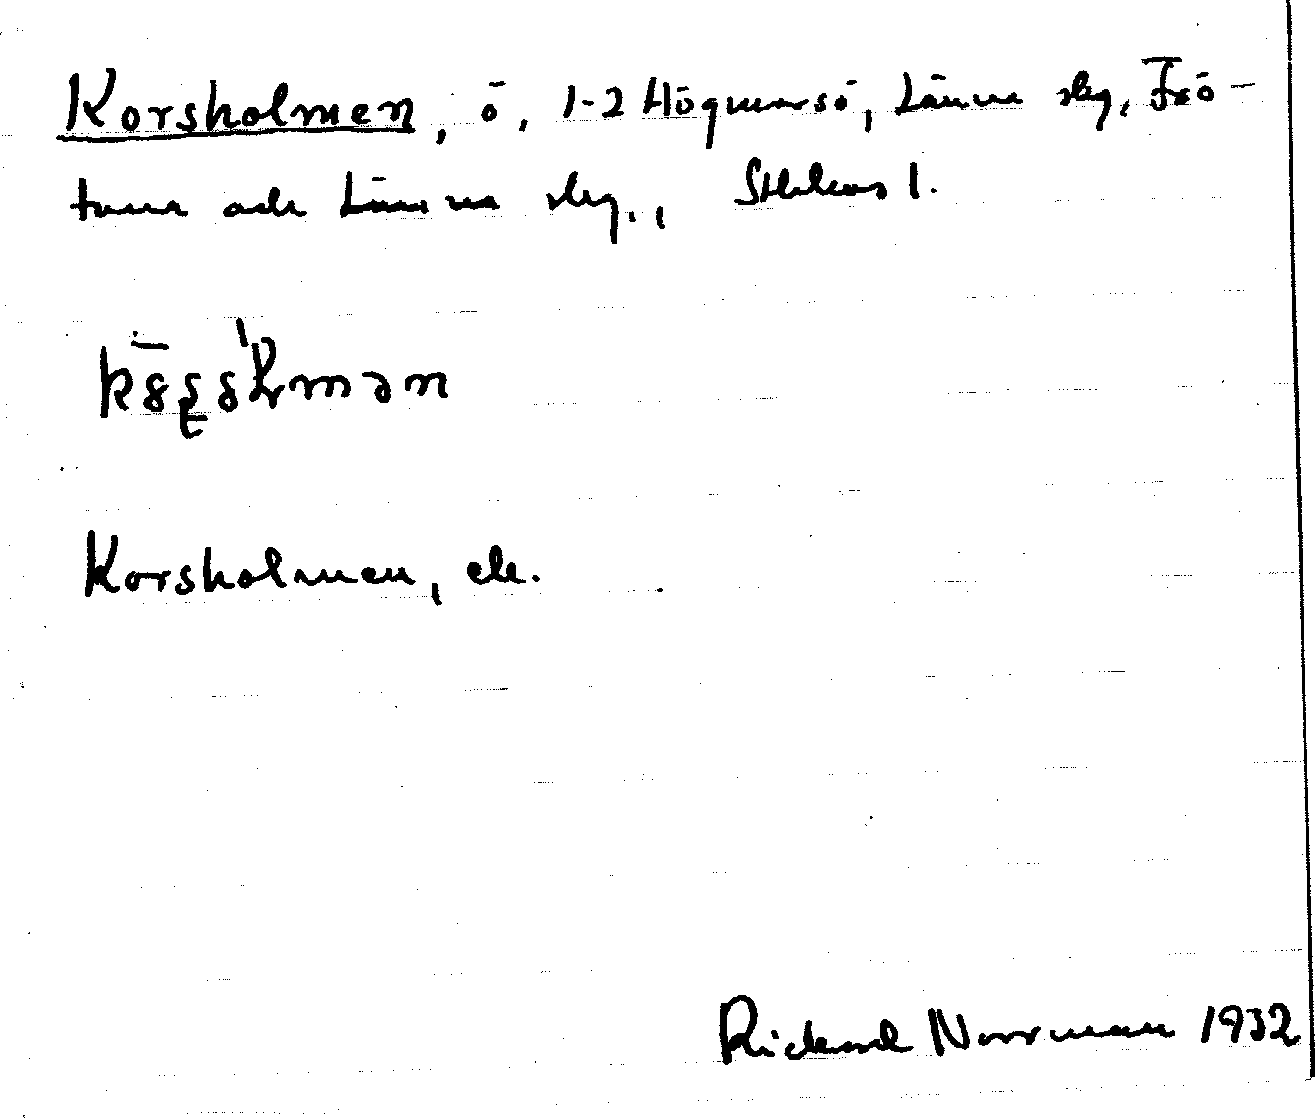 Korsholmen, ö, 1-2 Högmarsö, Länna skg, Frö-
tuna och Länna skg., Sthlms l.
Korsholmen, ek.
Rickard Norrman 1932